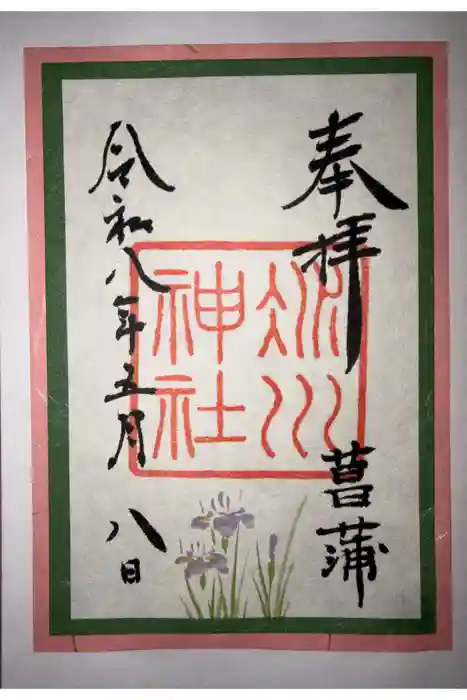 奉拝　菖蒲
冰川
神社
令和八年五月八日